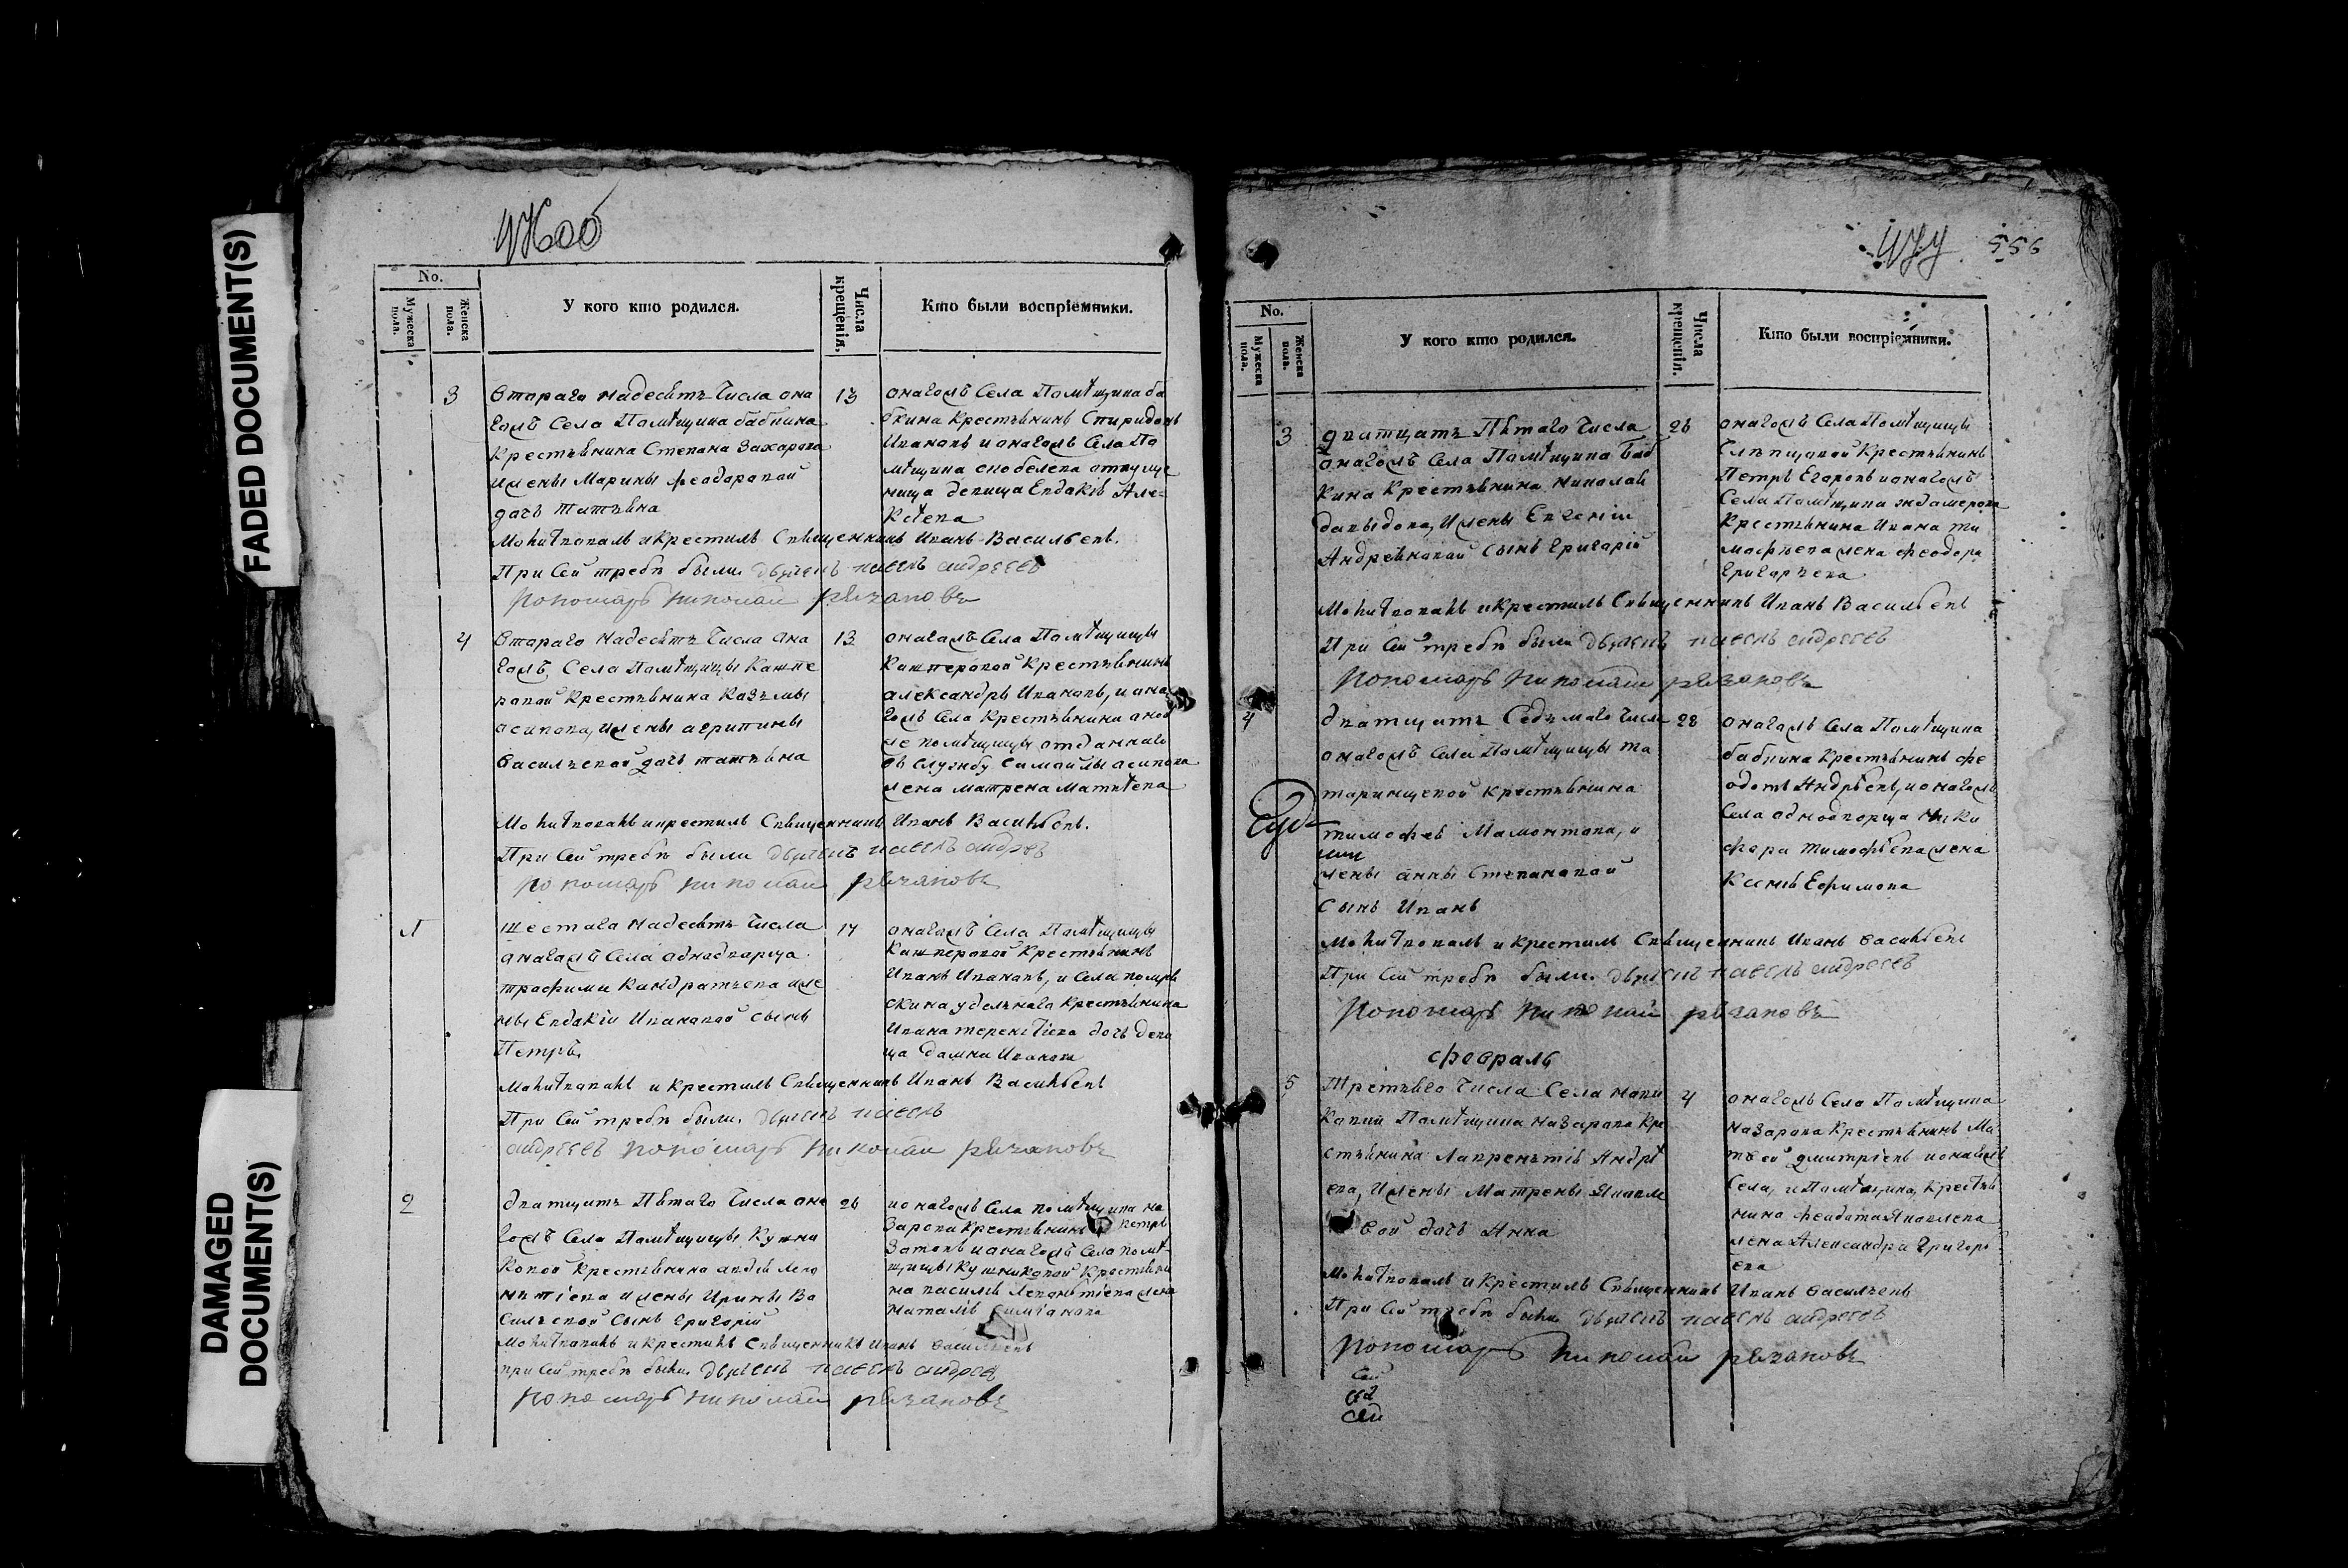 FADED DOCUMENT(S)
DAMAGED
DOCUMENT(S)
No.
Мужеска пола.
Женска пола.
У кого кто родился.
Числа крещенія.
Кто были воспріемники.
3
втораго надесять числа она
гомъ села Помѣщика бабкина
крестьянина Степана Захарова
жены Марины феодоровой
дочь Татьяна
13
онагомъ села Помѣщика ба
бкина крестьянинъ Спиридонъ
Ивановъ и онагомъ села По
мѣщика
девица Евдакія Але
ксѣева
Молитвовалъ и крестилъ Священникъ Иванъ Васильевъ.
При Сей требѣ были дьячекъ павелъ андреевъ
пономарь николай
4
втораго надесять числа она
гомъ, села Помѣщицы Кашпе
ровой крестьянина Казьмы
асипова, жены агрипины
васильевой дочь татьяна
13
онагомъ села Помѣщицы
Кашперовой крестьянинъ
александръ Ивановъ, и она
гомъ села крестьянина
помѣщицы отданнаго
въ службу самойлы асипова
жена матрена Матвѣева
Молитвовалъ и крестилъ Священникъ Иванъ Васильевъ.
При Сей требѣ были дьячекъ павелъ андреевъ
пономарь николай
шестаго надесять числа
онагомъ села однодворца
трофима Кандратьева же
ны Евдакіи Ивановой сынъ
Петръ,
17
онагомъ села Помѣщицы
Кашперовой крестьянинъ
Иванъ Ивановъ, и села
удельнаго крестьянина
Ивана терентіева дочь деви
ца домна Иванова
Молитвовалъ и крестилъ Священникъ Иванъ Васильевъ
При Сей требѣ были. дьячекъ павелъ
андреевъ пономарь николай
2
дватцать Пятаго числа она
гомъ села Помѣщицы Кушни
ковой крестьянина авдея Лео
нтіева жены Ирины Ва
сильевой сынъ Григорій
26
ионагомъ села помѣщика на
зарова крестьянинъ петръ
и онагомъ села помѣ
щицы Кушниковой крестьяни
на василія Леонтіева жена
наталія
Молитвовалъ и крестилъ Священникъ Иванъ васильевъ
при Сей требѣ были дьячекъ павелъ андреев
пономарь николай
556
No.
Мужеска пола.
Женска пола.
У кого кто родился.
Числа крещенія.
Кто были воспріемники.
3
дватцать Пятаго числа
онагомъ села Помѣщика баб
кина крестьянина николая
давыдова, жены Евгеніи
Андреяновой сынъ Григорій
26
онагомъ села Помѣщицы
крестьянинъ
Петръ Егоровъ и онагомъ
села Помѣщика
крестьянина Ивана ти
мофѣева жена феодора
Григорьева
Молитвовалъ и крестилъ Священникъ Иванъ Васильевъ
При Сей требѣ были дьячекъ павелъ андреевъ
пономарь николай
4
дватцать Седьмаго числа
онагомъ села Помѣщицы та
таринцевой крестьянина
тимофея Мамонтова, и
жены анны Степановой
сынъ Иванъ
28
онагомъ села Помѣщика
бабкина крестьянинъ фе
одотъ Андрѣевъ, и онагомъ
села однодворца Ники
фора тимофѣева жена
Ксенія Ефимова
Молитвовалъ и крестилъ Священникъ Иванъ васильевъ
При Сей требѣ были. дьячекъ павелъ андреевъ
пономарь николай
февраль
5
Третьяго числа села
Помѣщика назарова кре
стьянина Лаврентія Андрѣ
ева, жены Матрены Яковле
вой дочь Анна
4
онагомъ села Помѣщика
назарова крестьянинъ Ма
твей дмитріевъ и онагомъ
села, Помѣщика, крестья
нина феодота Яковлева
жена Александра Григорь
ева
Молитвовалъ и крестилъ Священникъ Иванъ васильевъ
При Сей требѣ были дьячекъ павелъ андреевъ
пономарь николай
Сей
Сей